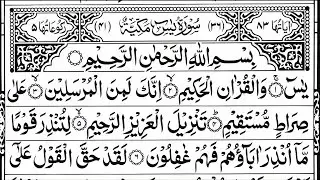 اٰیَاتُهَا ٨٣ (٣٦) سُوْرَةُ يٰسٓ مَكِّيَّةٌ (٤١) رُكُوْعَاتُهَا ٥
بِسْمِ اللّٰهِ الرَّحْمٰنِ الرَّحِيْمِ ○
يٰسٓ ۚ‏﴿۱﴾ وَالْقُرْاٰنِ الْحَكِيْمِ ۙ‏﴿۲﴾ اِنَّكَ لَمِنَ الْمُرْسَلِيْنَ ۙ‏﴿۳﴾ عَلٰى
صِرَاطٍ مُّسْتَقِيْمٍ ؕ‏﴿۴﴾ تَنْزِيْلَ الْعَزِيْزِ الرَّحِيْمِ ۙ‏﴿۵﴾ لِتُنْذِرَ قَوْمًا
مَّاۤ اُنْذِرَ اٰبَآؤُهُمْ فَهُمْ غٰفِلُوْنَ ‏﴿۶﴾ لَقَدْ حَقَّ الْقَوْلُ عَلٰٓى